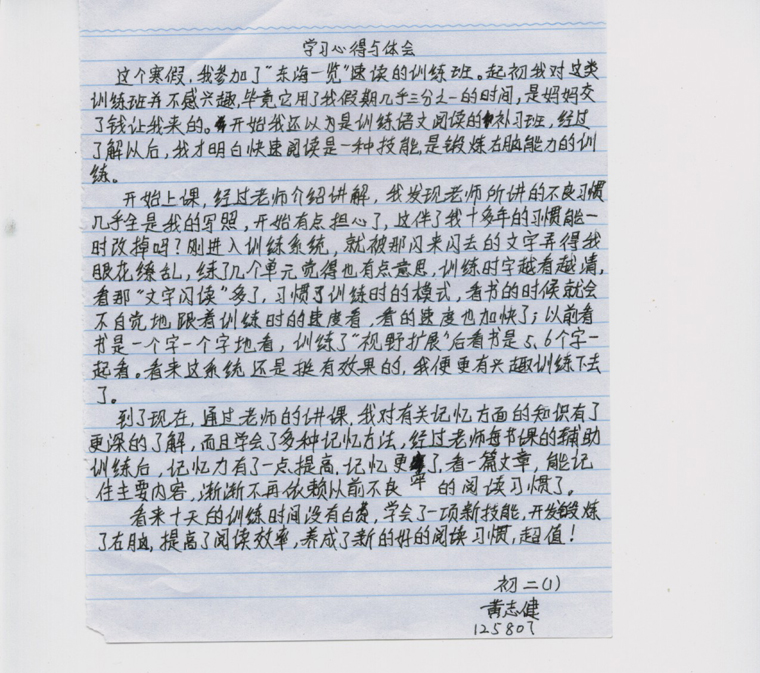 学习心得与体会
这个寒假,我参加了"东海一览"速读的训练班。起初我对这类
训练班并不感兴趣,毕竟它用了我假期几乎三分之一的时间,是妈妈交
了钱让我来的。开始我还以为是训练语文阅读的补习班,经过
了解以后,我才明白快速阅读是一种技能,是锻炼右脑能力的训
练。
开始上课,经过老师介绍讲解,我发现老师所讲的不良习惯
几乎全是我的写照,开始有点担心了,这伴了我十多年的习惯能一
时改掉吗?刚进入训练系统,就被那闪来闪去的文字弄得我
眼花缭乱,练了几个单元觉得也有点意思,训练时字越看越清,
看那"文字闪读"多了,习惯了训练时的模式,看书的时候就会
不自觉地跟着训练时的速度看,看的速度也加快了;以前看
书是一个字一个字地看,训练了"视野扩展"后看书是5、6个字一
起看。看来这系统还是挺有效果的,我便更有兴趣训练下去
了。
到了现在,通过老师的讲课,我对有关记忆方面的知识有了
更深的了解,而且学会了多种记忆方法,经过老师每节课的辅助
训练后,记忆力有了一点提高,记忆更牢了,看一篇文章,能记
住主要内容,渐渐不再依赖以前不良的阅读习惯了。
看来十天的训练时间没有白费,学会了一项新技能,开发锻炼
了右脑,提高了阅读效率,养成了新的好的阅读习惯,超值!
初二(1)
黄志健
125807